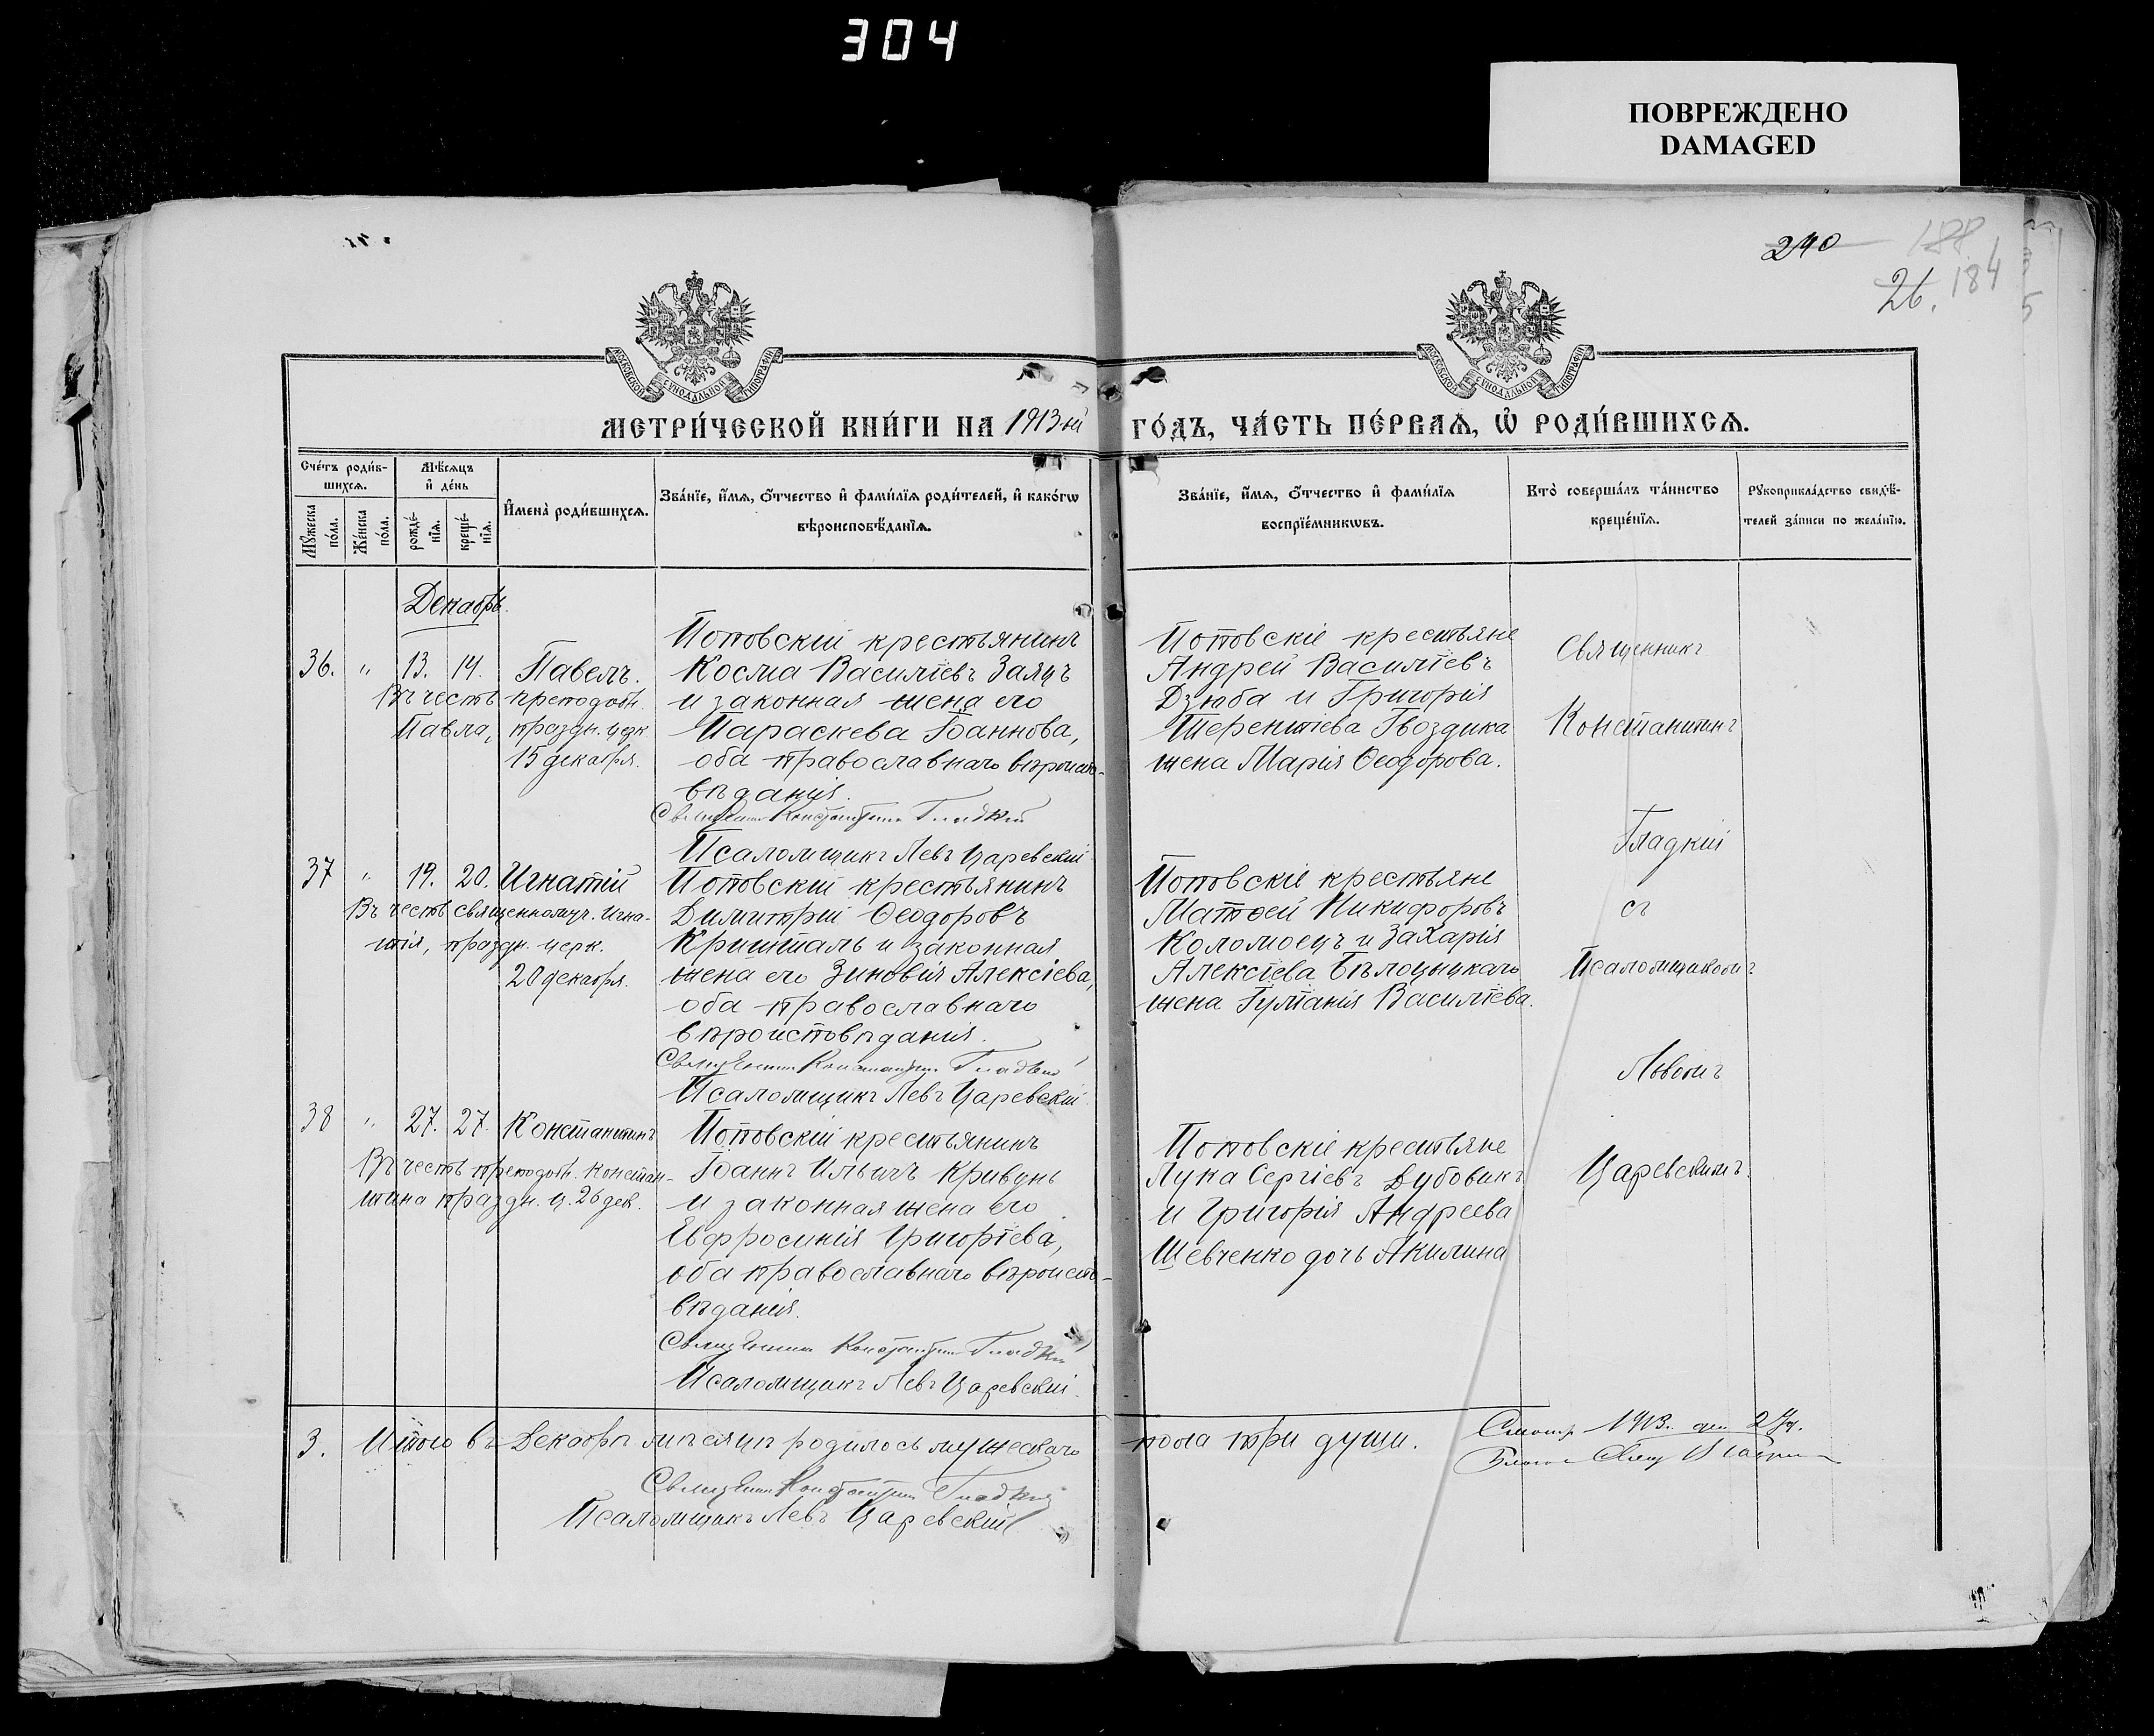 304
ПОВРЕЖДЕНО
DAMAGED
240
188
26.
184
МОСКОВСКОЙ СѴНОДАЛЬНОЙ ТИПОГРАФІИ
МОСКОВСКОЙ СѴНОДАЛЬНОЙ ТИПОГРАФІИ
МЕТРИ́ЧЕСКОЙ КНИ́ГИ НА 1913-й ГО́ДЪ, ЧА́СТЬ ПЕ́РВАѦ, Ѿ РОДИ́ВШИХСѦ.
Сче́тъ роди́в-
шихсѧ.
Мꙋ́жеска по́ла.
Же́нска по́ла.
Мѣ́сѧцъ
и҆ де́нь
рожде́-
нїѧ.
креще́-
нїѧ.
И҆мена̀ роди́вшихсѧ.
Зва́нїе, и҆́мѧ, ѻ҆́тчество и҆ фами́лїѧ роди́телей, и҆ како́гѡ
вѣроисповѣ́данїѧ.
Зва́нїе, и҆́мѧ, ѻ҆́тчество и҆ фами́лїѧ
воспрїе́мникѡвъ.
Кто̀ соверша́лъ та́инство
креще́нїѧ.
Рꙋкоприкла́дство свидѣ́-
телей за́писи по жела́нїю.
Декабрь.
36. " 13. 14. Павелъ.
Въ честь преподобн.
Павла, праздн. церк.
15 декабря.
Поповскій крестьянинъ
Косма Василіевъ Заяцъ
и законная жена его
Параскева Іоаннова,
оба православнаго вѣроиспо-
вѣданія.
Священникъ Константинъ Гладкій
Псаломщикъ Левъ Царевскій
Поповскіе крестьяне
Андрей Василіевъ
Дзюба и Григорія
Терентіева Гвоздика
жена Марія Ѳеодорова.
Священникъ
Константинъ
Гладкій
съ
Псаломщикомъ
Львомъ
Царевскимъ.
37 " 19. 20. Игнатій
Въ честь священномуч. Игна-
тія, праздн. церк.
20 декабря.
Поповскій крестьянинъ
Димитрій Ѳеодоровъ
Кришталь и законная
жена его Зиновія Алексіева,
оба православнаго
вѣроисповѣданія.
Священникъ Константинъ Гладкій
Псаломщикъ Левъ Царевскій.
Поповскіе крестьяне
Матѳей Никифоровъ
Коломоецъ и Захарія
Алексіева Бѣлоцыцкаго
жена Іуліанія Василіева.
38 " 27. 27. Константинъ
Въ честь преподобн. Констан-
тина праздн. ц. 26 дек.
Поповскій крестьянинъ
Іоаннъ Ильичъ Кривунь
и законная жена его
Евфросинія Григоріева,
оба православнаго вѣроиспо-
вѣданія.
Священникъ Константинъ Гладкій
Псаломщикъ Левъ Царевскій.
Поповскіе крестьяне
Лука Сергіевъ Дубовикъ
и Григорія Андреева
Шевченко дочь Акилина
3. Итого въ Декабрѣ мѣсяцѣ родилось мужескаго пола три души.
Священникъ Константинъ Гладкій
Псаломщикъ Левъ Царевскій
1913.